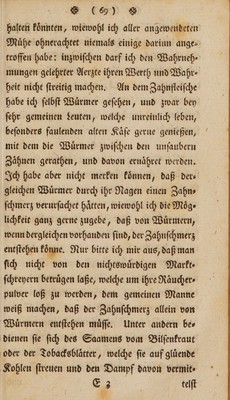 ( 69 )
halten könnten, wiewohl ich aller angewendeten
Mühe ohnerachtet niemals einige darinn ange-
troffen habe: inzwischen darf ich den Wahrneh-
mungen gelehrter Aerzte ihren Werth und Wahr-
heit nicht streitig machen. An dem Zahnfleische
habe ich selbst Würmer gesehen, und zwar bey
sehr gemeinen Leuten, welche unreinlich leben,
besonders faulenden alten Käse gerne genießen,
mit dem die Würmer zwischen den unsaubern
Zähnen gerathen, und davon ernähret werden.
Ich habe aber nicht merken können, daß der-
gleichen Würmer durch ihr Nagen einen Zahn-
schmerz verursachet hätten, wiewohl ich die Mög-
lichkeit ganz gerne zugebe, daß von Würmern,
wenn dergleichen vorhanden sind, der Zahnschmerz
entstehen könne. Nur bitte ich mir aus, daß man
sich nicht von den nichtswürdigen Markt-
schreyern betrügen laße, welche um ihre Räucher-
pulver loß zu werden, dem gemeinen Manne
weiß machen, daß der Zahnschmerz allein von
Würmern entstehen müsse. Unter andern be-
dienen sie sich des Saamens vom Bilsenkraut
oder der Tobacksblätter, welche sie auf glüende
Kohlen streuen und den Dampf davon vermit-
E 3 telst